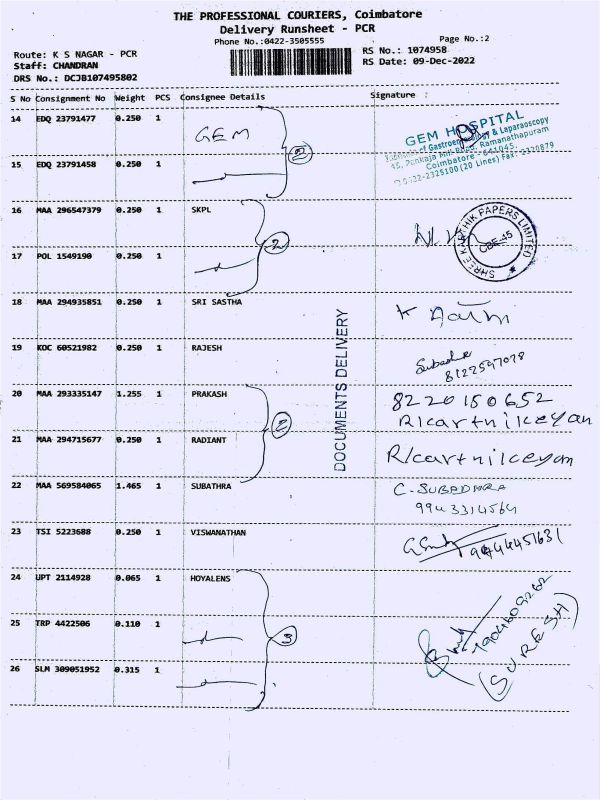 THE PROFESSIONAL COURIERS, Coimbatore
Delivery Runsheet - PCR
Phone No.:0422-3505555
Page No.:2
Route: K S NAGAR - PCR
RS No.: 1074958
Staff: CHANDRAN
RS Date: 09-Dec-2022
DRS No.: DCJB107495802
S No Consignment No Weight PCS Consignee Details Signature :
14 EDQ 23791477 0.250 1 GEM
GEM HOSPITAL
of Gastroenterology & Laparaoscopy
45, Pankaja Mill Road, Ramanathapuram
Coimbatore - 641045.
0422-2325100 (20 Lines) Fax: 2320879
2
15 EDQ 23791458 0.250 1
16 MAA 296547379 0.250 1 SKPL
SHREE KARTHIK PAPERS LIMITED
CBE-45
2
17 POL 1549190 0.250 1
18 MAA 294935851 0.250 1 SRI SASTHA
DOCUMENTS DELIVERY
19 KOC 60521982 0.250 1 RAJESH
8122597078
20 MAA 293335147 1.255 1 PRAKASH 8220150652
R/cartnilceyan
2
21 MAA 294715677 0.250 1 RADIANT R/cartnilceyan
22 MAA 569584065 1.465 1 SUBATHRA C. SUBADHRA
9943314564
23 TSI 5223688 0.250 1 VISWANATHAN
24 UPT 2114928 0.065 1 HOYALENS
25 TRP 4422506 0.110 1
3
(SURESH)
26 SLM 309051952 0.315 1